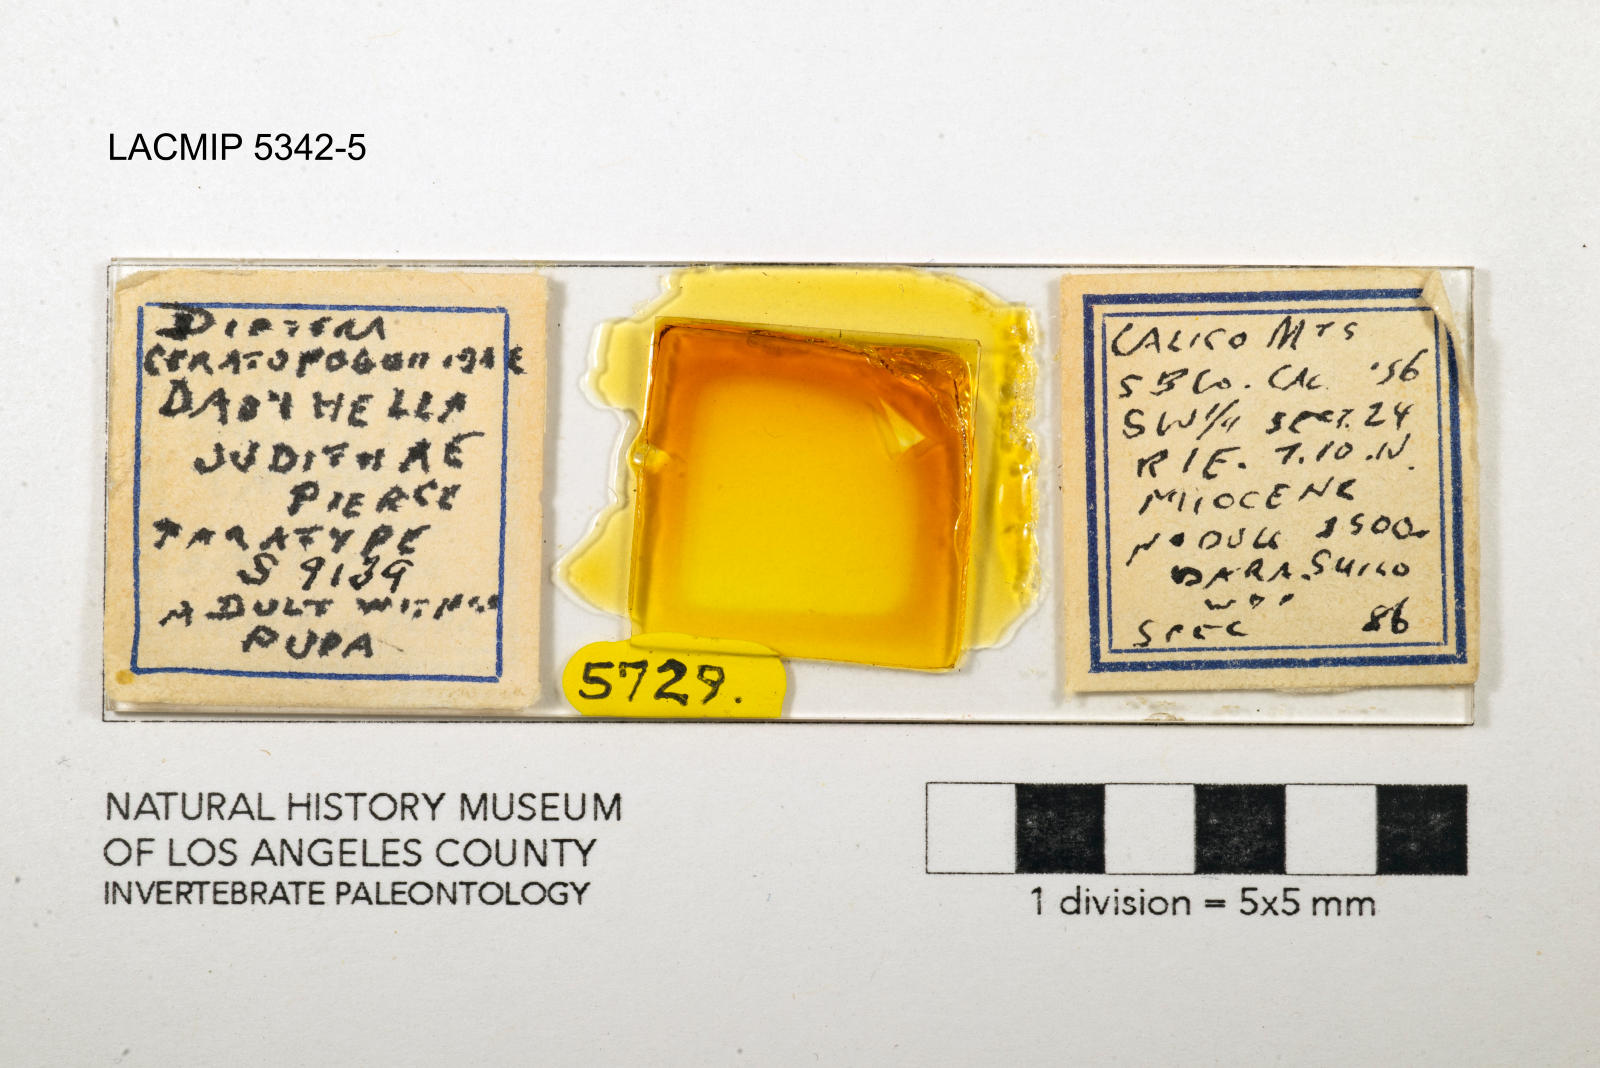 LACMIP 5342-5
DIPTERA
CERATOPOGONIDAE
DASYHELEA
JUDITHAE
PIERCE
PARATYPE
S 9139
ADULT WITHIN
PUPA
5729.
CALICO MTS
S B Co. CAL '56
SW 1/4 SECT. 24
R 1 E. T. 10. N.
MIOCENE
NODULE 3500.
DARA. SHILO
SPEC 86
NATURAL HISTORY MUSEUM
OF LOS ANGELES COUNTY
INVERTEBRATE PALEONTOLOGY
1 division = 5x5 mm